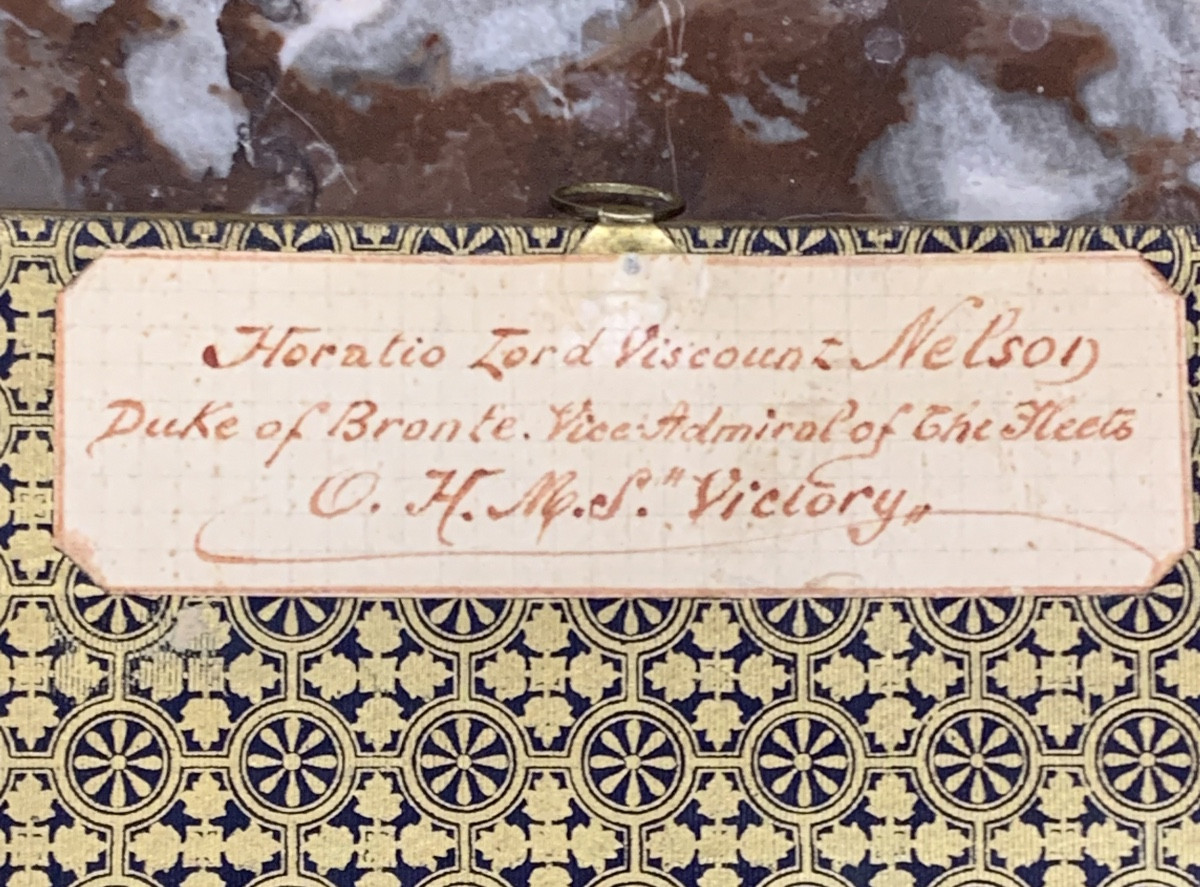 Horatio Lord Viscount Nelson
Duke of Bronte. Vice-Admiral of the Fleets
O. H. M. S. "Victory„